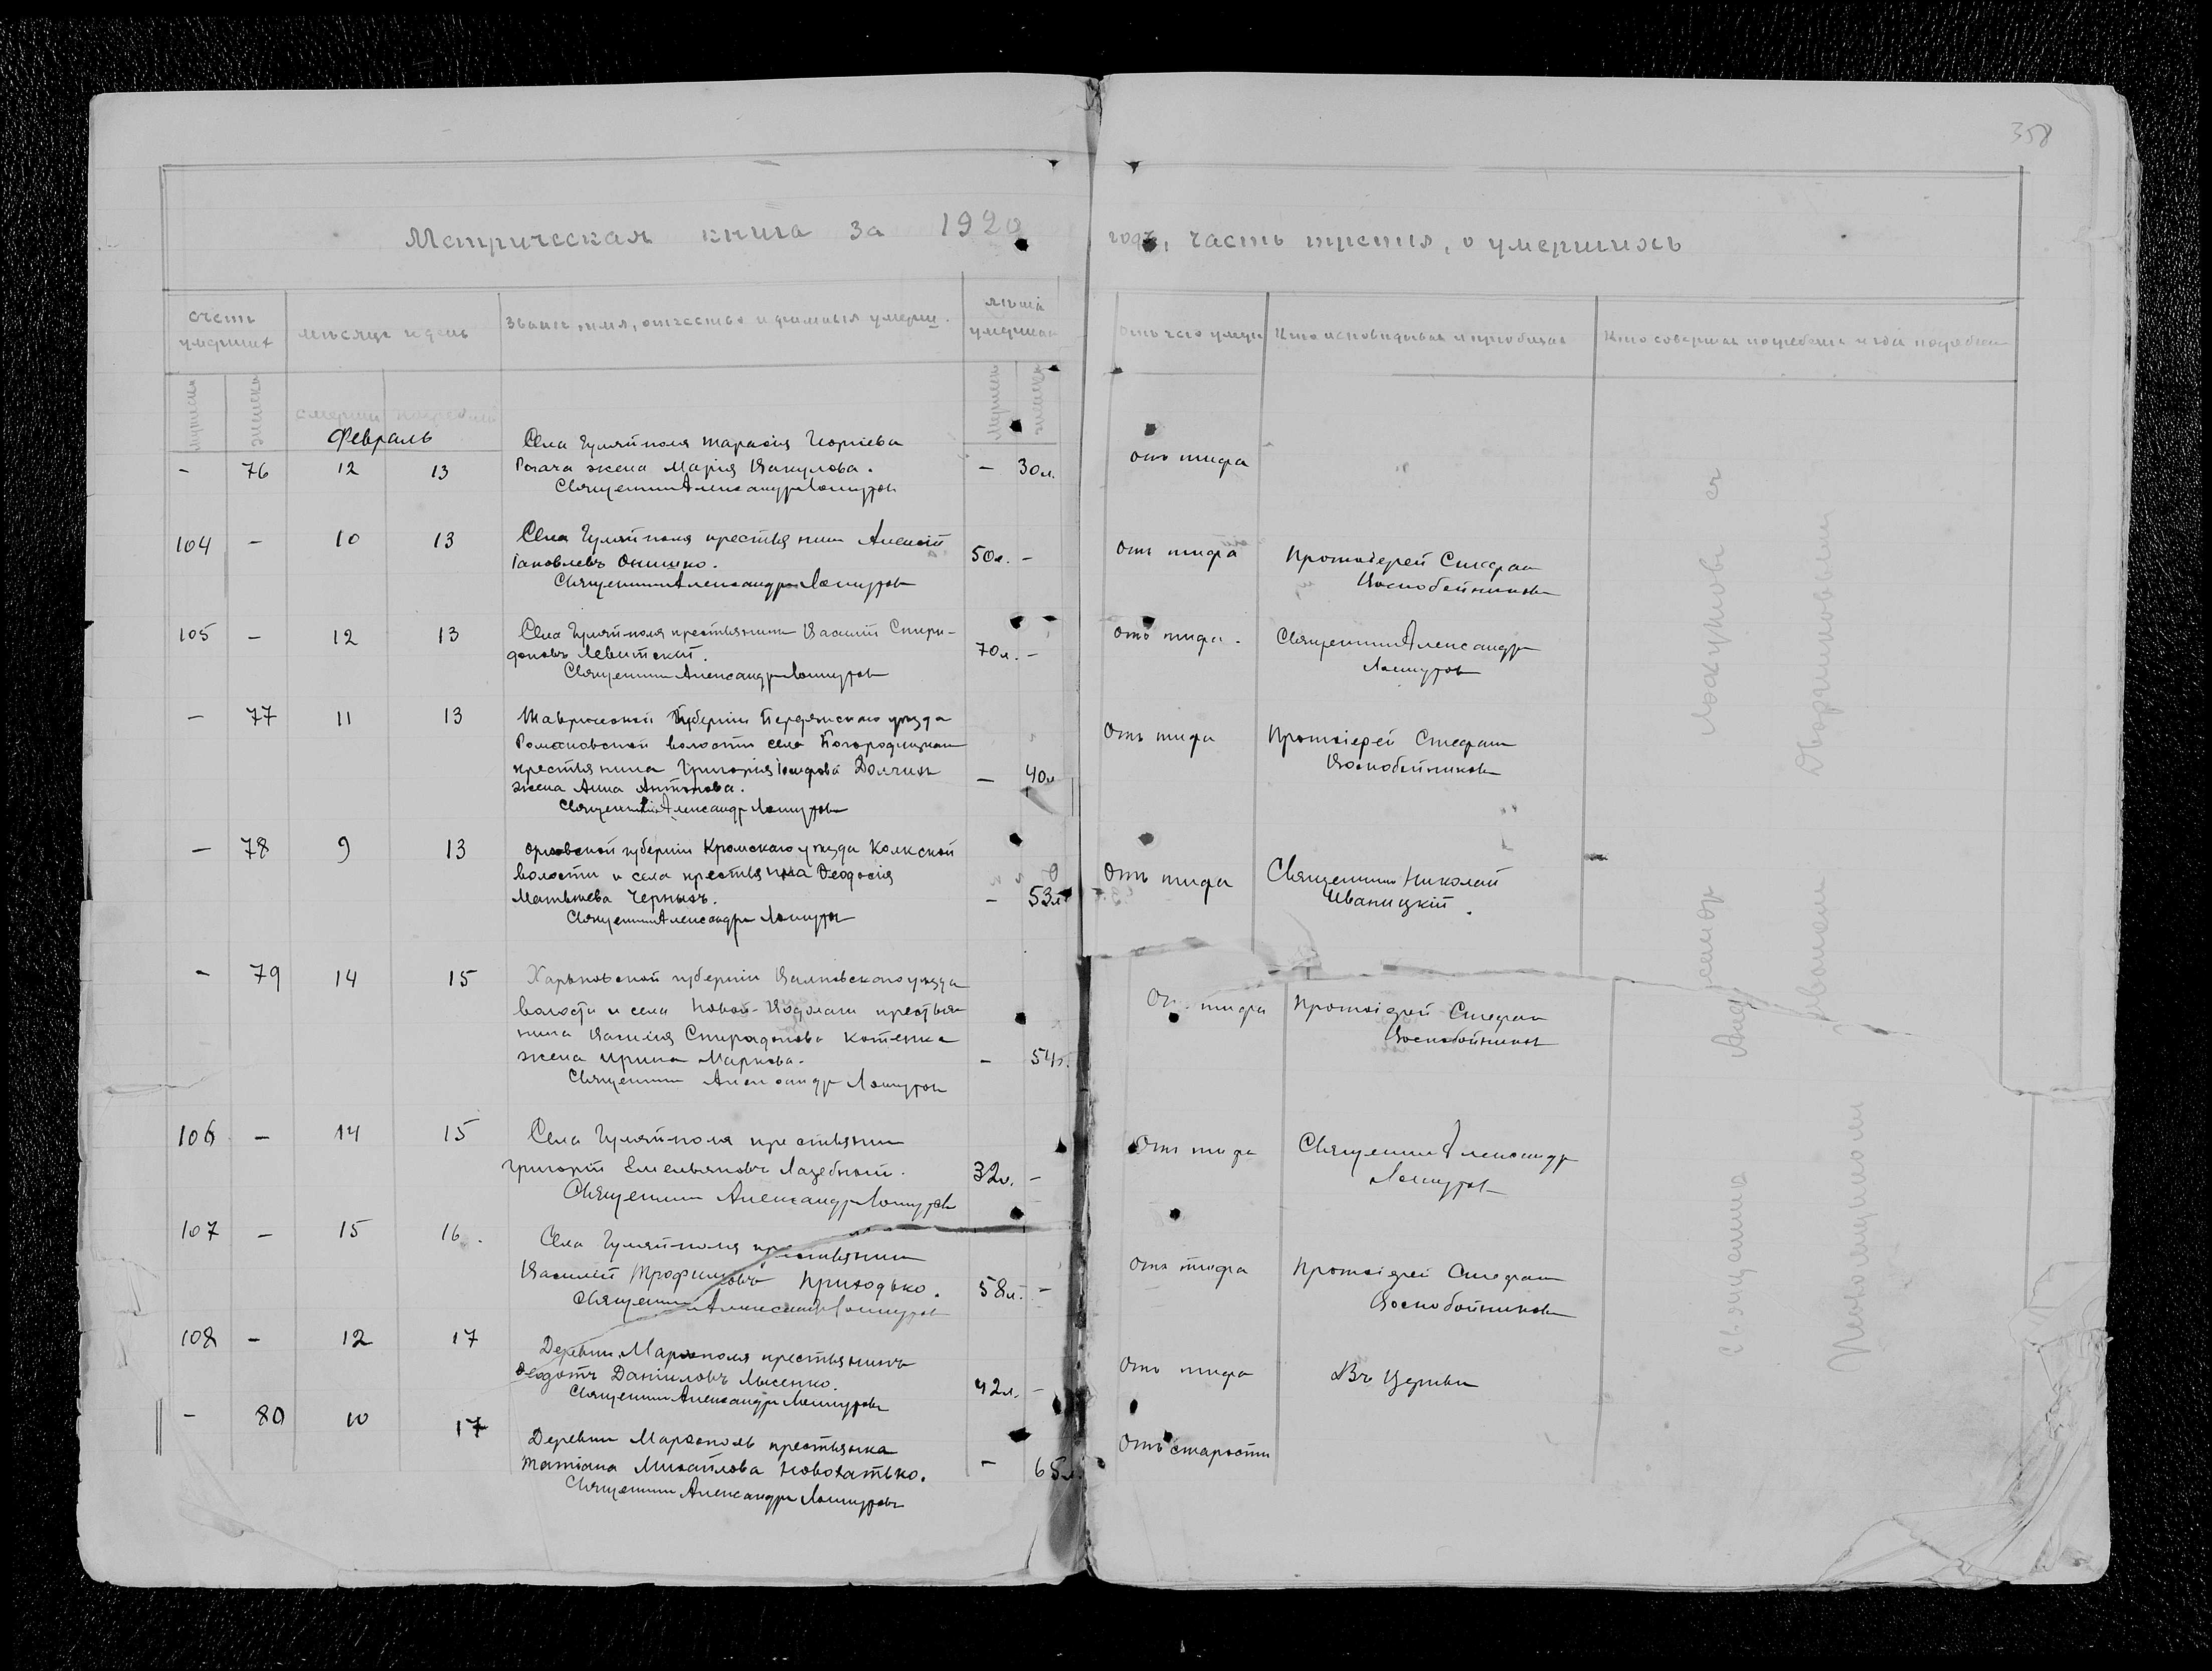 358
Метрическая книга за 1920 годъ, часть третья, о умершихъ
счетъ умершихъ
мѣсяцъ и день
Званіе, имя, отчество и фамилія умерш.
лѣта умершаго
Отъ чего умеръ
Кто исповѣдывалъ и пріобщалъ
Кто совершалъ погребеніе и гдѣ погребены
мужеска
женска
смерти
погребенія
мужеска
женска
Февраль
- 76 12 13
Села Гуляйполя Тарасія Георгіева
Рогача жена Марія Вакулова.
Священникъ Александръ
- 30л.
отъ тифа
104 - 10 13
Села Гуляйполя крестьянинъ Алексѣй
Іаковлевъ Онишко.
Священникъ Александръ
50л. -
Отъ тифа
Протоіерей Стефанъ
Воскобойниковъ
105 - 12 13
Села Гуляйполя крестьянинъ Василій Спири-
доновъ Левитскій.
Священникъ Александръ
70л. -
Отъ тифа.
Священникъ Александръ
- 77 11 13
Таврической губерніи Бердянскаго уѣзда
Романовской волости села Богородицкаго
крестьянина Григорія Іосифова
жена Анна Антонова.
Священникъ Александръ
- 40л
Отъ тифа
Протоіерей Стефанъ
Воскобойниковъ
- 78 9 13
Орловской губерніи Кромскаго уѣзда
волости и села крестьянка Ѳеодосія
Матвѣева Черныхъ.
Священникъ Александръ
- 53л
Отъ тифа
Священникъ Николай
Иваницкій.
- 79 14 15
Харьковской губерніи Валковскаго уѣзда
волости и села Новой-Водолаги крестья-
нина Василія Спиридонова Котенка
жена Ирина Маркова.
Священникъ Александръ
- 54л.
От. тифа
Протоіерей Стефанъ
Воскобойниковъ
106 - 14 15
Села Гуляйполя крестьянинъ
Григорій Емельяновъ Лазебный.
Священникъ Александръ
32л. -
Отъ тифа
Священникъ Александръ
107 - 15 16.
Села Гуляйполя крестьянинъ
Василій Трофимовъ Приходько.
Священникъ Александръ
58л. -
Отъ тифа
Протоіерей Стефанъ
Воскобойниковъ
108 - 12 17
Деревни Марфополя крестьянинъ
Ѳеодотъ Даніиловъ Лысенко.
Священникъ Александръ
42л. -
Отъ тифа
Въ Церкви
- 80 10 17
Деревни Марфополь крестьянка
Татіана Михайлова Новохатько.
Священникъ Александръ
- 65л.
Отъ старости
Священникъ
Псаломщикомъ